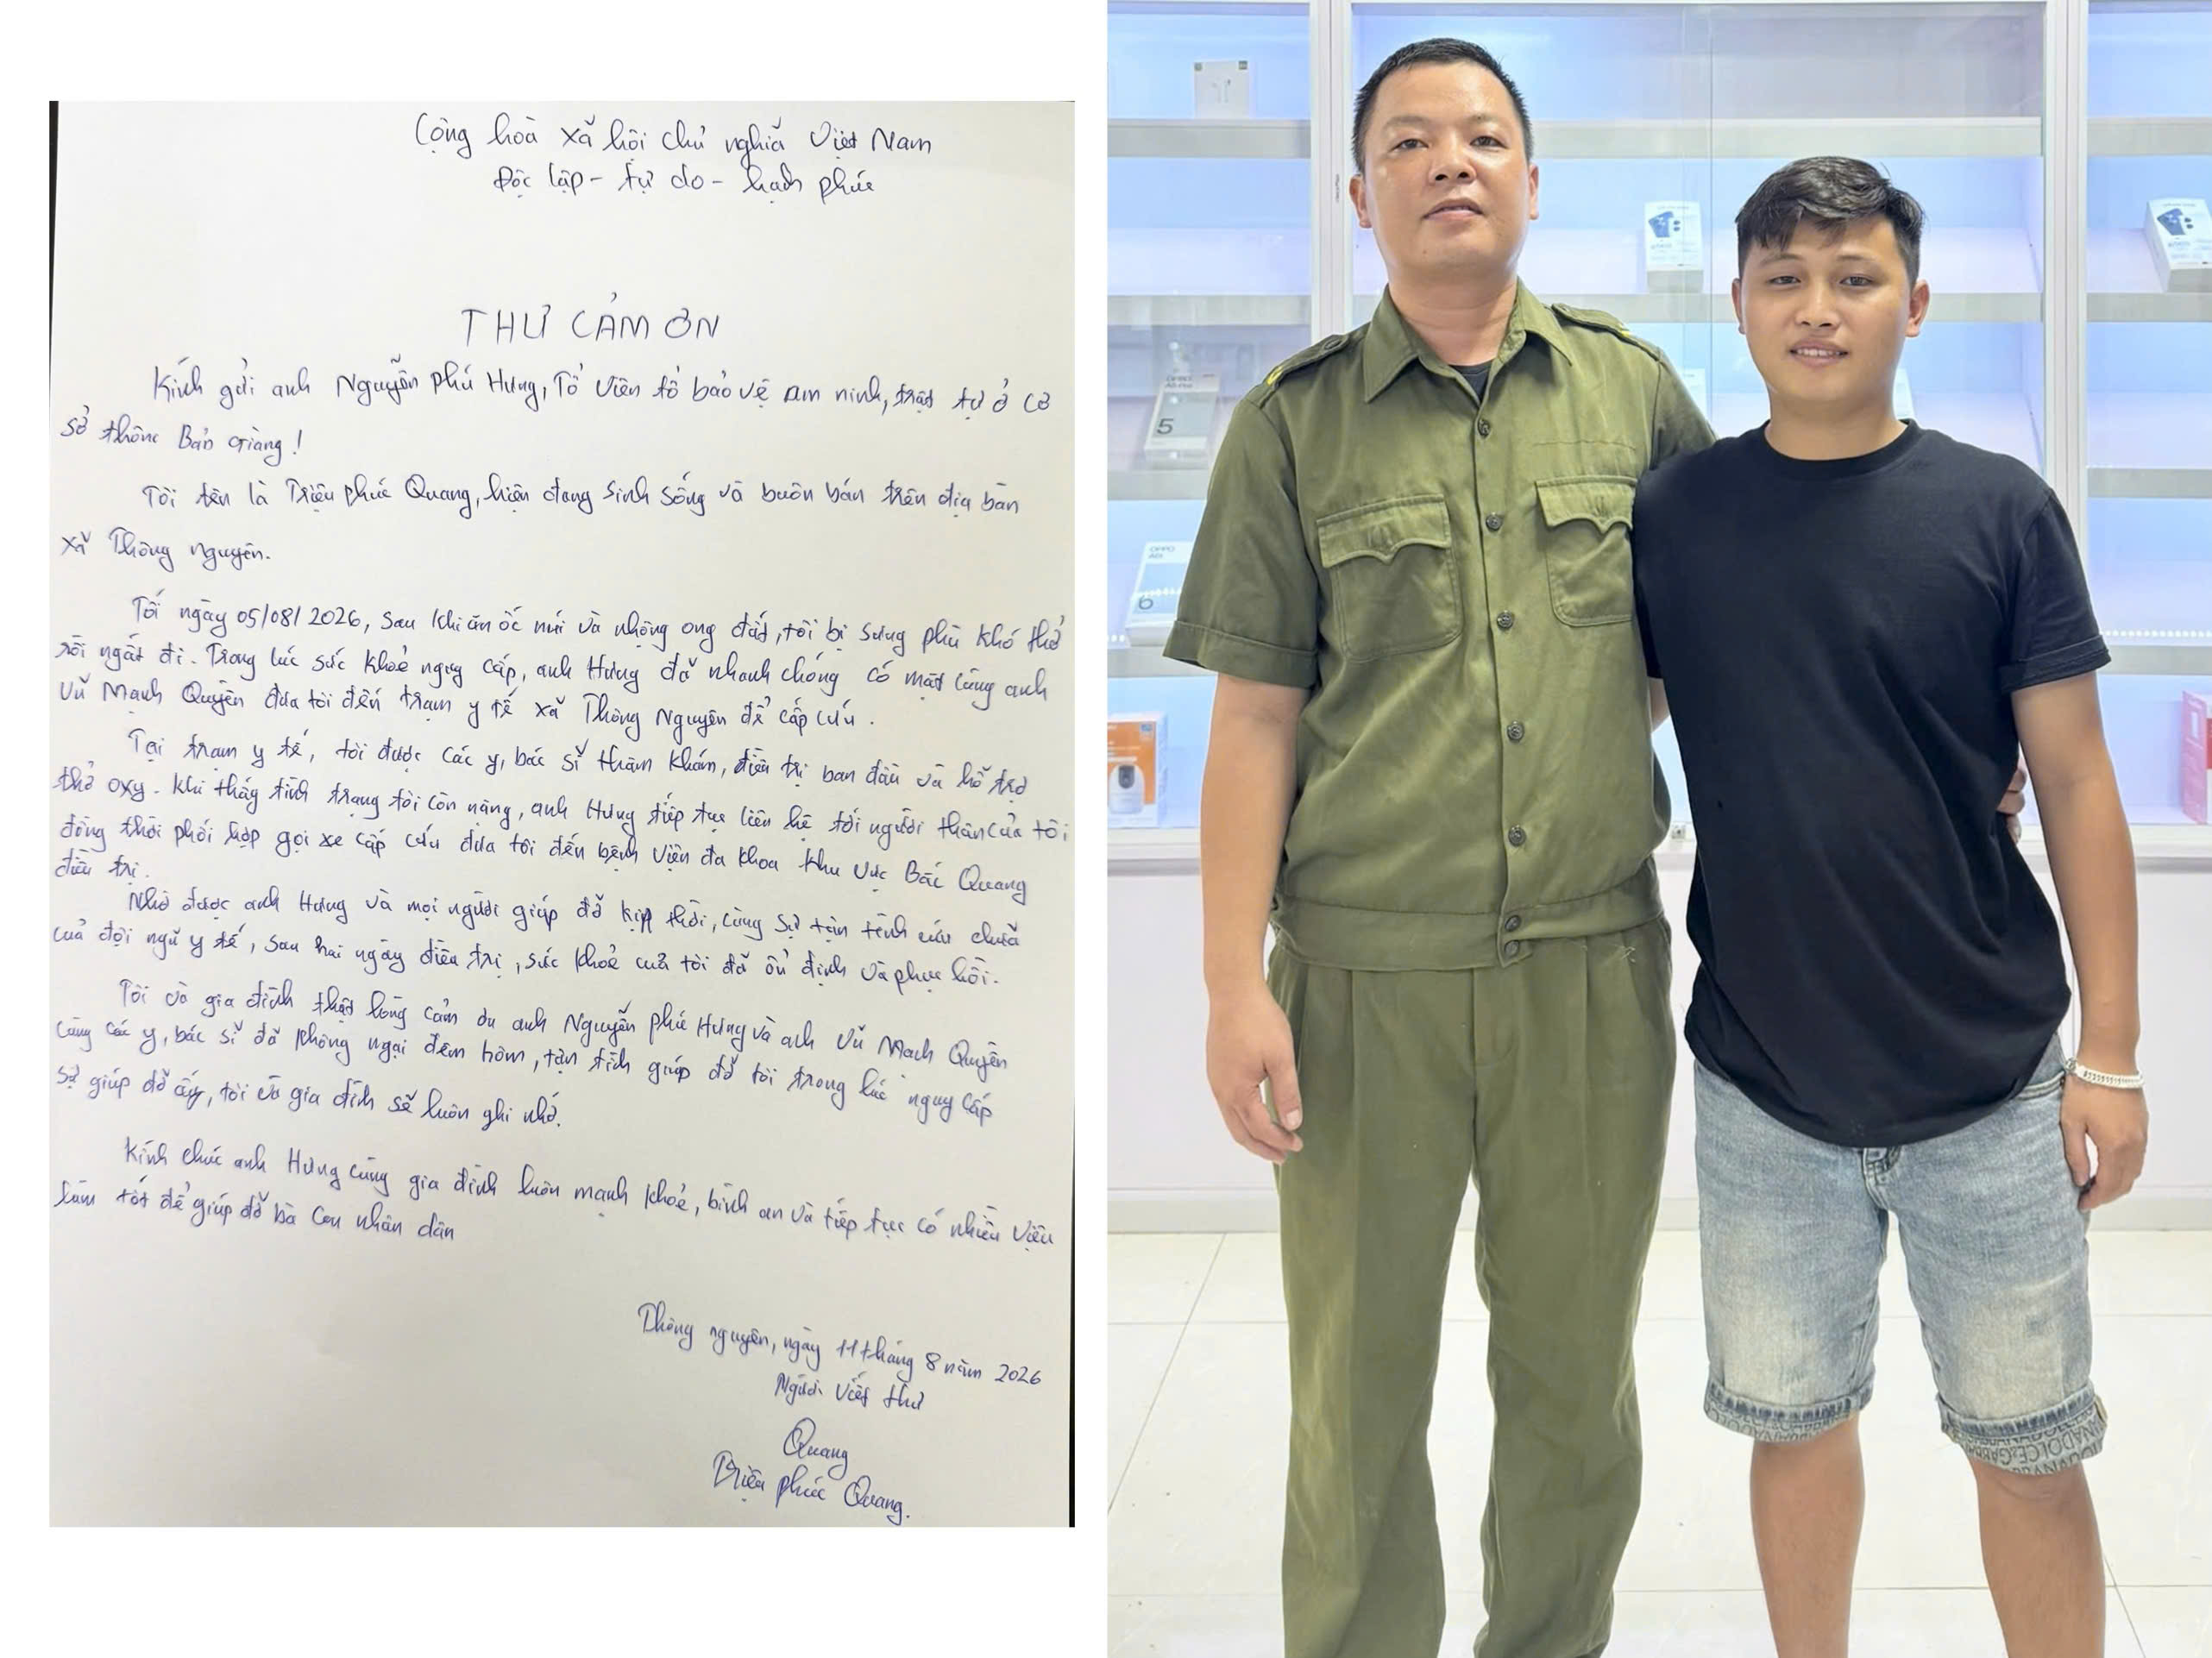 Cộng hoà xã hội chủ nghĩa Việt Nam
Độc lập - tự do - hạnh phúc
THƯ CẢM ƠN
Kính gửi anh Nguyễn Phú Hưng, Tổ viên tổ bảo vệ an ninh, trật tự ở cơ
sở thôn Bản Giàng!
Tôi tên là Triệu Phúc Quang, hiện đang sinh sống và buôn bán trên địa bàn
xã Thông Nguyên.
Tối ngày 05/08/2026, sau khi ăn ốc núi và nhộng ong đất, tôi bị sưng phù khó thở
rồi ngất đi. Trong lúc sức khoẻ nguy cấp, anh Hưng đã nhanh chóng có mặt cùng anh
Vũ Mạnh Quyền đưa tôi đến trạm y tế xã Thông Nguyên để cấp cứu.
Tại trạm y tế, tôi được các y, bác sĩ thăm khám, điều trị ban đầu và hỗ trợ
thở oxy. Khi thấy tình trạng tôi còn nặng, anh Hưng tiếp tục liên hệ tới người thân của tôi
đồng thời phối hợp gọi xe cấp cứu đưa tôi đến bệnh viện đa khoa khu vực Bắc Quang
điều trị.
Nhờ được anh Hưng và mọi người giúp đỡ kịp thời, cùng sự tận tình cứu chữa
của đội ngũ y tế, sau hai ngày điều trị, sức khoẻ của tôi đã ổn định và phục hồi.
Tôi và gia đình thật lòng cảm ơn anh Nguyễn Phú Hưng và anh Vũ Mạnh Quyền
cùng các y, bác sĩ đã không ngại đêm hôm, tận tình giúp đỡ tôi trong lúc nguy cấp
sự giúp đỡ ấy, tôi và gia đình sẽ luôn ghi nhớ.
Kính chúc anh Hưng cùng gia đình luôn mạnh khoẻ, bình an và tiếp tục có nhiều việc
làm tốt để giúp đỡ bà con nhân dân
Thông Nguyên, ngày 11 tháng 8 năm 2026
Người viết thư
Quang
Triệu Phúc Quang.
OPPO
5
OPPO
6